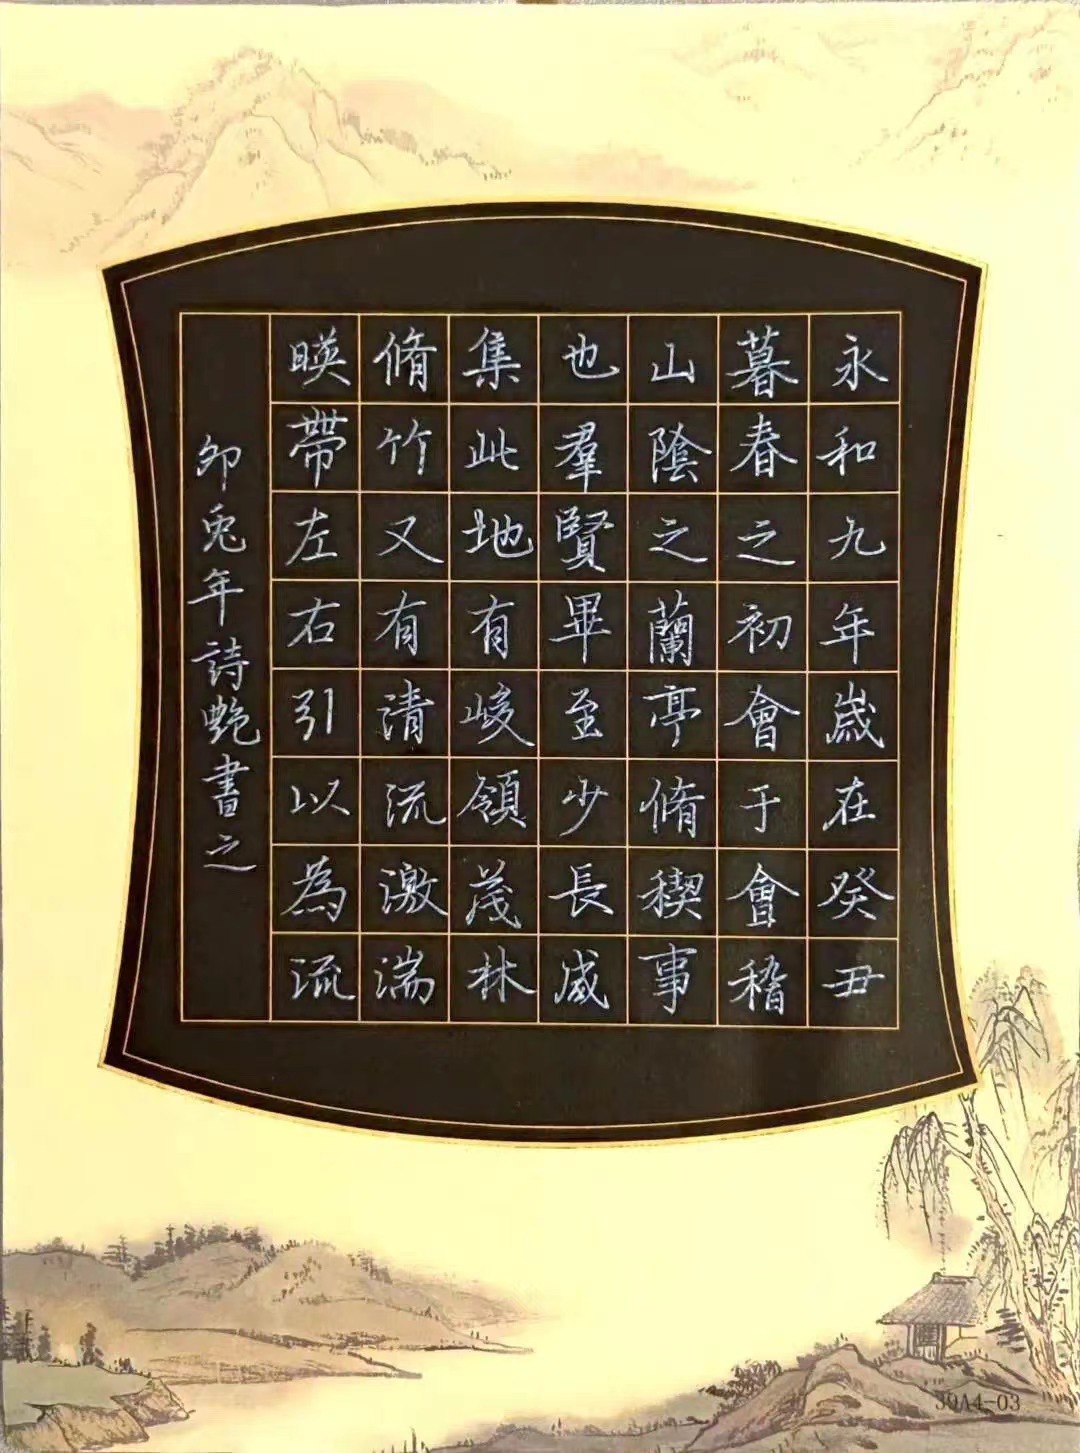 永和九年歲在癸丑
暮春之初會于會稽
山陰之蘭亭脩稧事
也羣賢畢至少長咸
集此地有峻領茂林
脩竹又有清流激湍
暎帶左右引以為流
卯兎年詩艷書之
39A4-03